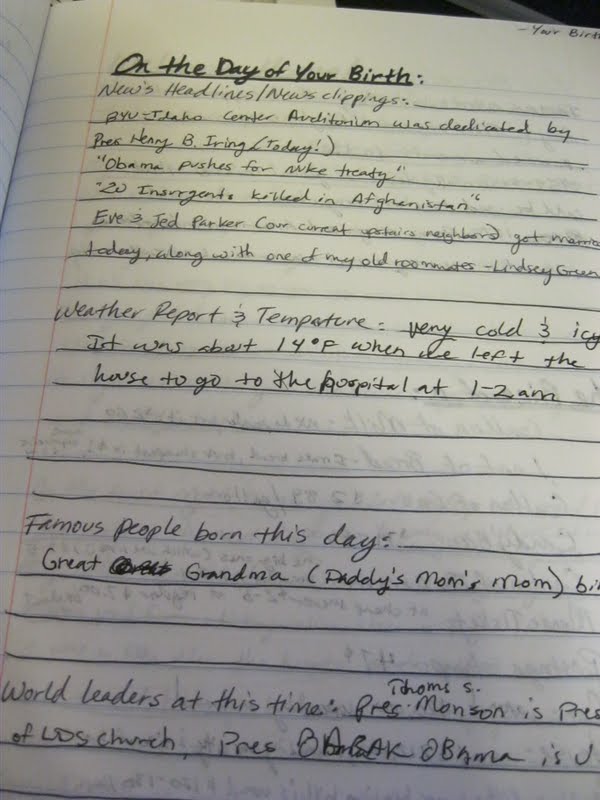 -Your Birth
On the Day of Your Birth:
New's Headlines/News clippings:
BYU-Idaho Center Auditorium was dedicated by
Pres Henry B. Iring (Today!)
"Obama pushes for nuke treaty"
"20 Insurgents killed in Afghanistan"
Eve & Jed Parker (our current upstairs neighbors) got married
today, along with one of my old roommates - Lindsey Green
Weather Report & Temperture: very cold & icy
It was about 14°F when we left the
house to go to the hospital at 1-2am
Famous people born this day:
Great Grandma (Daddy's Mom's Mom) bi
Thoms S.
World leaders at this time: Pres. Monson is Pres
of LDS church, Pres OBAMA is U